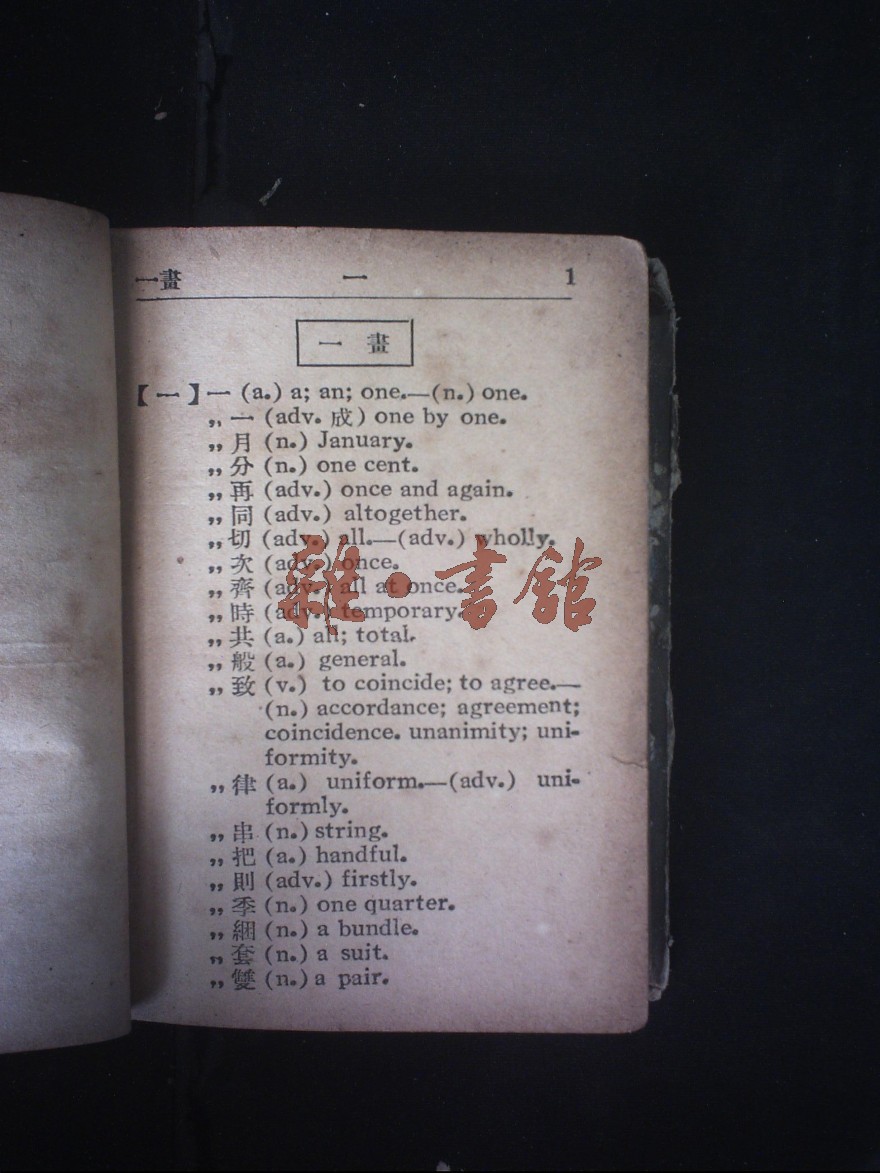 一畫 一 1
一 畫
【一】一 (a.) a; an; one.—(n.) one.
,, 一 (adv. 成) one by one.
,, 月 (n.) January.
,, 分 (n.) one cent.
,, 再 (adv.) once and again.
,, 同 (adv.) altogether.
,, 切 (adv.) all.—(adv.) wholly.
,, 次 (adv.) once.
,, 齊 (adv.) all at once.
,, 時 (adv.) temporary.
,, 共 (a.) all; total.
,, 般 (a.) general.
,, 致 (v.) to coincide; to agree.—
(n.) accordance; agreement;
coincidence. unanimity; uni-
formity.
,, 律 (a.) uniform.—(adv.) uni-
formly.
,, 串 (n.) string.
,, 把 (a.) handful.
,, 則 (adv.) firstly.
,, 季 (n.) one quarter.
,, 綑 (n.) a bundle.
,, 套 (n.) a suit.
,, 雙 (n.) a pair.
雜·書館